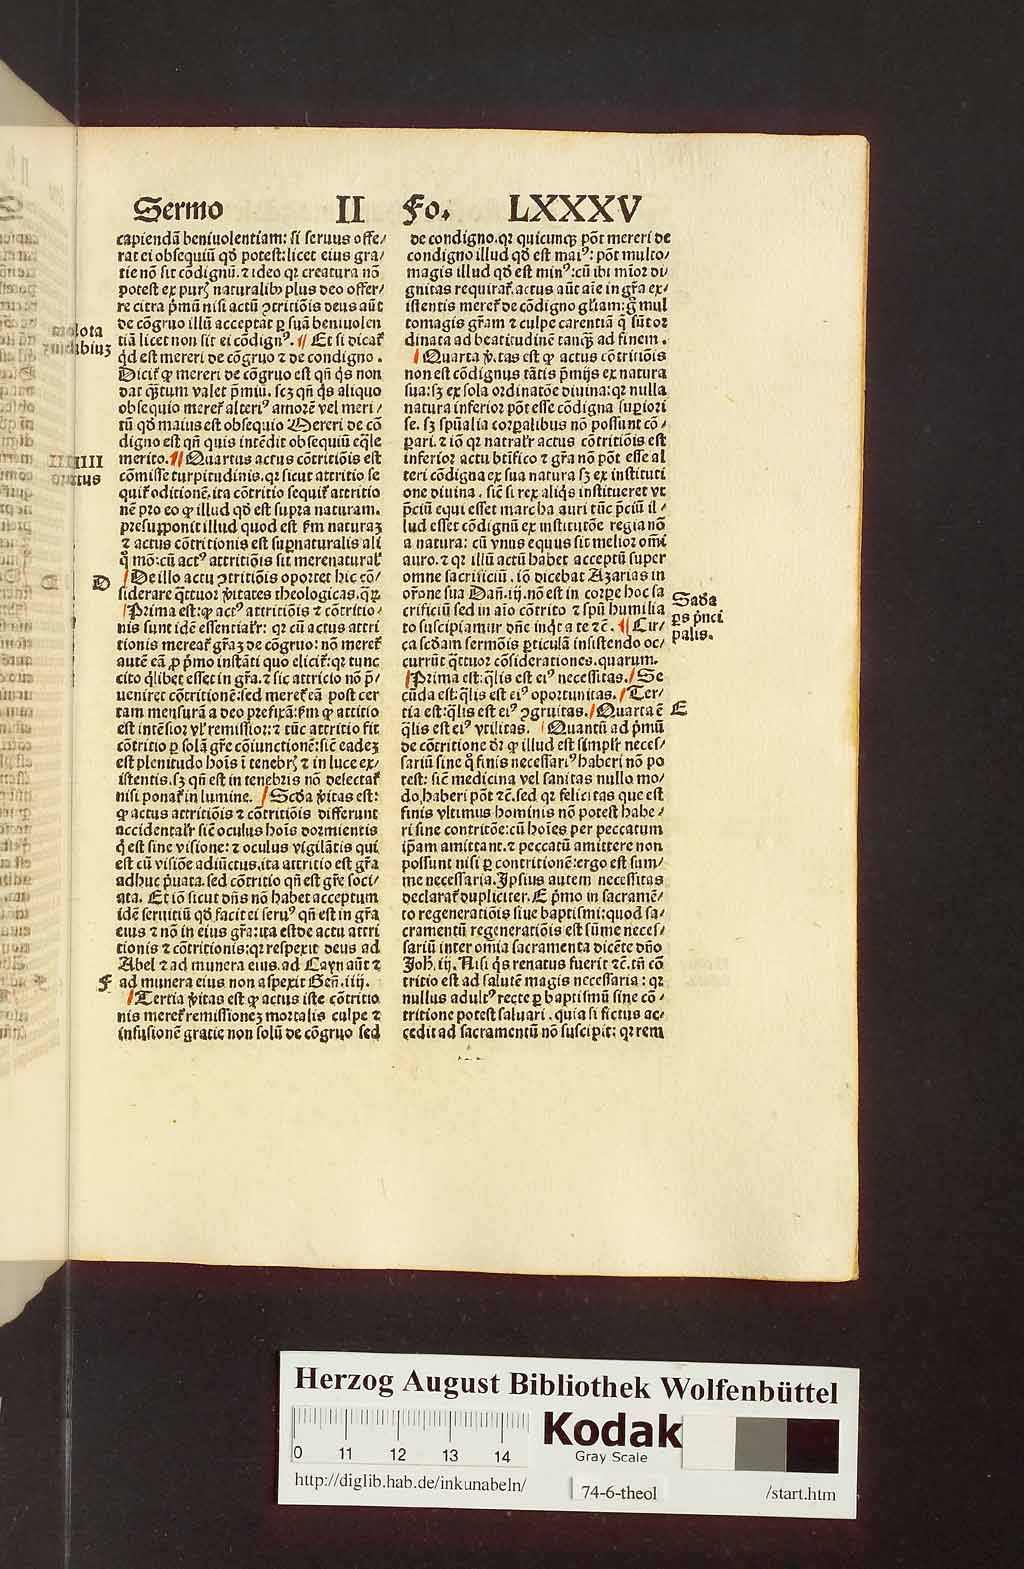 Sermo II Fo. LXXXV
capiendā beniuolentiam: si seruus offe/
rat ei obsequiū qđ potest: licet eius gra/
tie nō sit cōdignū. ⁊ ideo qꝛ creatura nō
potest ex purꝭ naturalibꝰ plus deo offer/
re citra p̄mū nisi actū ꝯtritiōis deus aūt
de cōgruo illū acceptat ꝑ suā beniuolen
tiā licet non sit ei cōdignꝰ. ¶ Et si dicat̃
q̇d est mereri de cōgruo ⁊ de condigno.
Dicit̃ ꝙ mereri de cōgruo est qn̄ q̇s non
dat q̄tum valet p̄miū. scꝫ qn̄ q̇s aliquo
obsequio meret̃ alteriꝰ amorē vel meri/
tū qđ maius est obsequio Mereri de cō
digno est qn̄ quis intēdit obsequiū eq̄le
merito. ¶ Quartus actus cōtritiōis est
cōmisse turpitudinis. qꝛ sicut attritio se
quit̃ oditionē. ita cōtritio sequit̃ attritio
nē pro eo ꝙ illud qđ est supra naturam.
presupponit illud quod est ẜm naturaꝫ
⁊ actus cōtritionis est suꝑnaturalis ali
q̊ mō: cū actꝰ attritiōis sit merenatural̃
De illo actu ꝯtritiōis oportet hic cō/
siderare q̄ttuor v̄itates theologicas. qꝝ
Prima est: ꝙ actꝰ attritiōis ⁊ cōtritio/
nis sunt idē essential̃r: qꝛ cū actus attri
tionis mereat̃ gr̄aꝫ de cōgruo: nō meret̃
autē eā ꝓ p̄mo instāti quo elicit̃: qꝛ tunc
cito q̇libet esset in gr̄a. ⁊ sic attricio nō p̄/
ueniret cōtritionē: sed meret̃ eā post cer
tam mensurā a deo prefixā: ẜm ꝙ attitio
est intēsior vl̓ remissior: ⁊ tūc attritio fit
cōtritio ꝑ solā gr̄e cōiunctionē: sic̄ eadeꝫ
est plenitudo hoīs ī tenebrꝭ ⁊ in luce ex/
istentis. sꝫ qn̄ est in tenebris nō delectat̃
nisi ponat̃ in lumine. Scđa v̄itas est:
ꝙ actus attritiōis ⁊ cōtritiōis differunt
accidental̃r sic̄ oculus hoīs dormientis
q̇ est sine visione: ⁊ oculus vigilātis qui
est cū visiōe adiūctus. ita attritio est gr̄a
adhuc p̄uata. sed cōtritio qn̄ est gr̄e soci/
ata. Et iō sicut dn̄s nō habet acceptum
idē seruitiū qđ facit ei seruꝰ qn̄ est in gr̄a
eius ⁊ nō in eius gr̄a: ita est de actu attri
tionis ⁊ cōtritionis: qꝛ respexit deus ad
Abel ⁊ ad munera eius. ad Cayn aūt ⁊
ad munera eius non aspexit Gen̄. iiij.
Tertia v̄itas est ꝙ actus iste cōtritio
nis meret̃ remissioneꝫ mortalis culpe ⁊
infusionē gratie non solū de cōgruo sed
D
F
de condigno. qꝛ quicunqꝫ pōt mereri de
condigno illud qđ est maiꝰ: pōt multo/
magis illud qđ est minꝰ: cū ibi māoꝛ di/
gnitas requirat̃. actus aūt aīe in gr̄a ex/
istentis meret̃ de cōdigno gl̓iam: g̊ mul
tomagis gr̄am ⁊ culpe carentiā q̄ sūt or
dinata ad beatitudinē tanqꝫ ad finem.
Quarta v̄itas est ꝙ actus cōtritiōis
non est cōdignus tātis p̄mijs ex natura
sua: sꝫ ex sola ordinatōe diuina: qꝛ nulla
natura inferior pōt esse cōdigna suꝑiori
se. sꝫ spūalia corꝑalibus nō possunt cō/
ꝑari. ⁊ iō qꝛ natral̃r actus cōtritiōis est
inferior actu btīfico ⁊ gr̄a nō pōt esse al
teri cōdigna ex sua natura sꝫ ex instituti
one diuina. sic̄ si rex aliq̇s institueret vt
p̄ciū equi esset marcha auri tūc p̄ciū il/
lud esset cōdignū ex institutōe regia nō
a natura: cū vnus equus sit melior om̄i
auro. ⁊ qꝛ illū actū habet acceptū super
omne sacrificiū. iō dicebat Azarias in
or̄one sua Dan̄. iij. nō est in corꝑe hoc sa
crificiū sed in aīo cōtrito ⁊ spū humilia
to suscipiamur dn̄e inq̇t a te ⁊c̄. ¶ Cir/
ca scđam sermōis ꝑticulā insistendo oc/
currūt q̄ttuor cōsiderationes. quarum.
Prima est: q̄lis est eiꝰ necessitas. Se
cūda est: q̄lis est eiꝰ oportunitas. Ter/
tia est: q̄lis est eiꝰ ꝯgruitas. Quarta ē
q̄lis est eiꝰ vtilitas. Quantū ad p̄mū
de cōtritione d̄r ꝙ illud est simpl̓r neces/
sariū sine q̊ finis necessariꝰ haberi nō po
test: sic̄ medicina vel sanitas nullo mo/
do, haberi pōt ⁊c̄. sed qꝛ felicitas que est
finis vltimus hominis nō potest habe/
ri sine contritōe: cū hoīes per peccatum
ip̄am amittant. ⁊ peccatū amittere non
possunt nisi ꝑ contritionē: ergo est sum/
me necessaria. Ipsius autem necessitas
declarat̃ dupliciter. E p̄mo in sacramē/
to regeneratiōis siue baptismi: quod sa/
cramentū regeneratiōis est sūme neces/
sariū inter omīa sacramenta dicēte dn̄o
Joh̄. iij. Nisi q̇s renatus fuerit ⁊c̄. tn̄ cō
tritio est ad salutē magis necessaria: qꝛ
nullus adultꝰ recte ꝑ baptismū sine cō/
tritione potest saluari. quia si fictus ac/
cedit ad sacramentū nō suscipit: qꝛ rem
Scđa
ꝑs p̄nci
palis.
E
Herzog August Bibliothek Wolfenbüttel
0 11 12 13 14
Kodak
Gray Scale
http://diglib.hab.de/inkunabeln/
74-6-theol
/start.htm